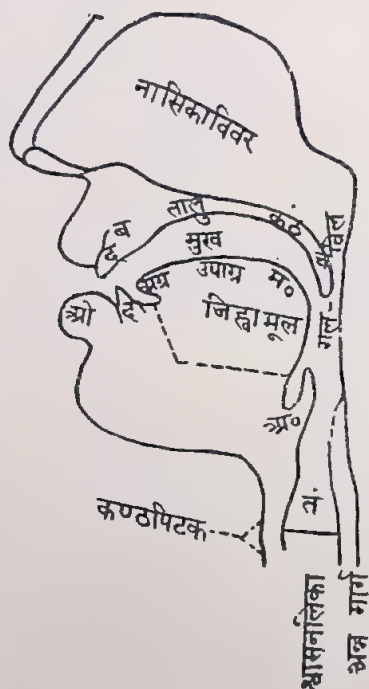 नासिकाविवर
ब
तालु
कंठ
द
मुख
अग्र
उपाग्र
म॰
ओ
द
जिह्वामूल
गल-
बिल
अ॰
कण्ठपिटक
तं.
श्वासनलिका
अन्न मार्ग